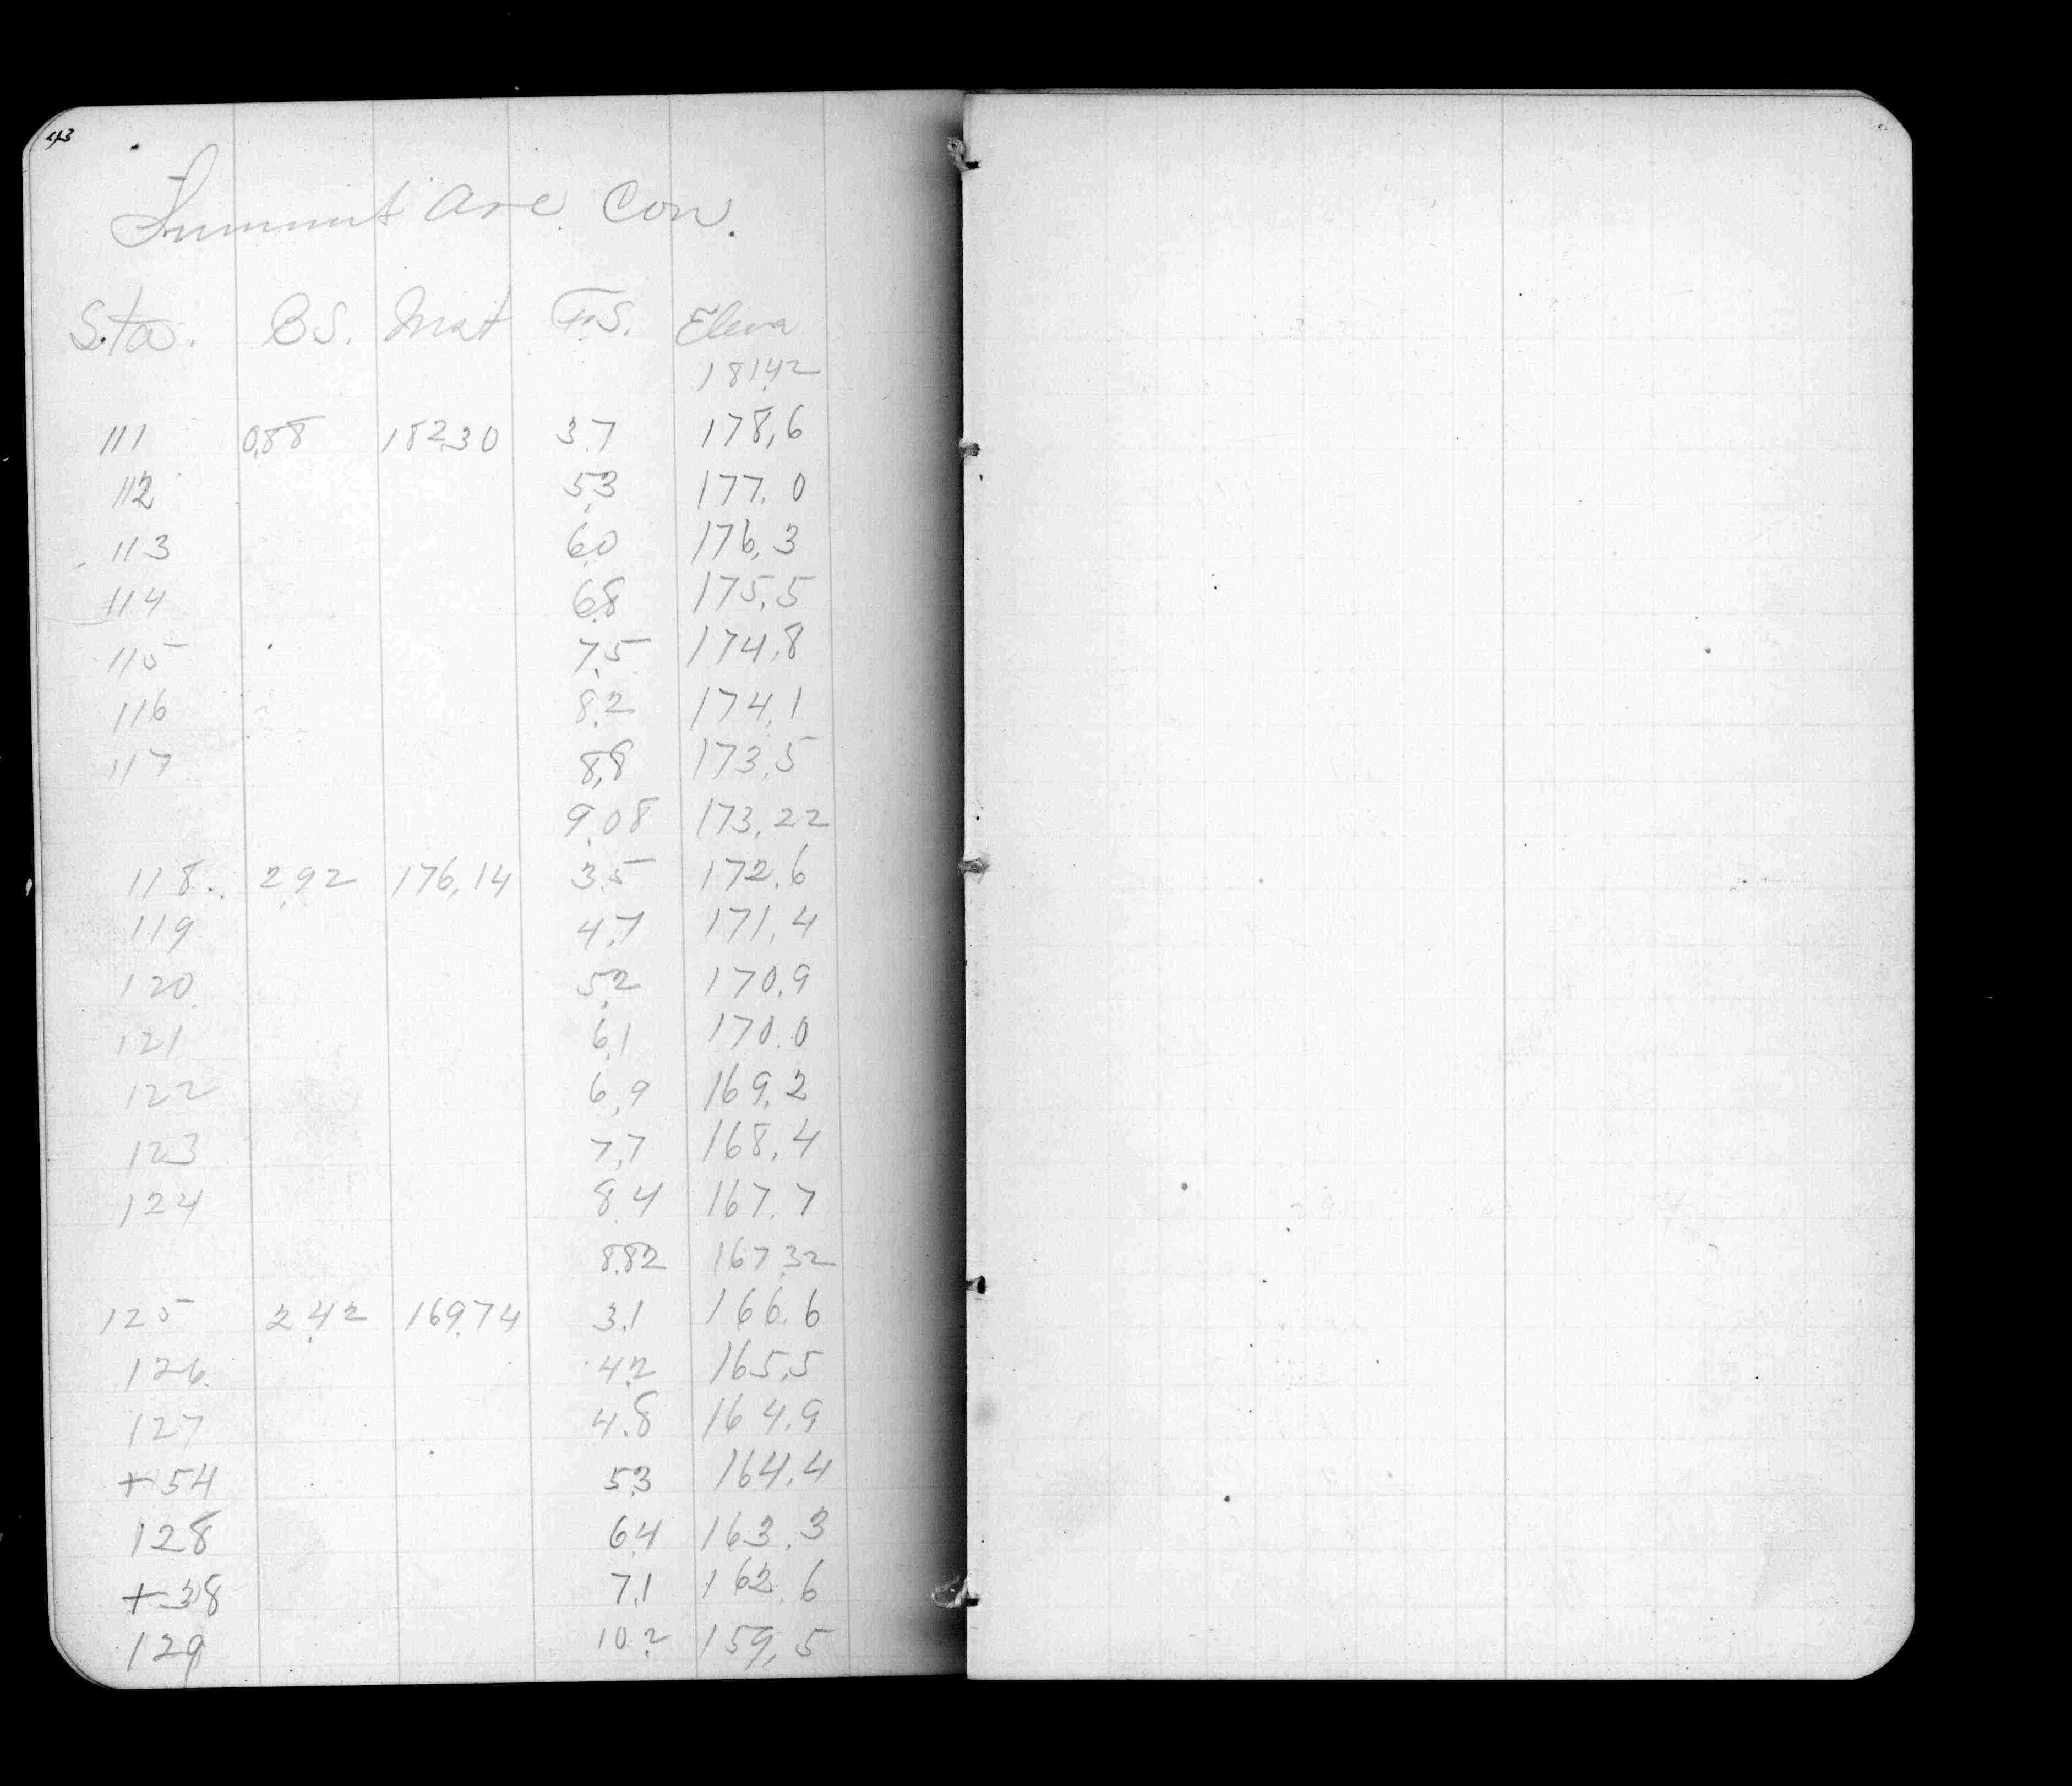 43
Summit Ave. Con.
Sta. B.S. Inst F.S. Eleva
181.42
111 0.88 182.30 3.7 178.6
112 5.3 177.0
113 6.0 176.3
114 6.8 175.5
115 7.5 174.8
116 8.2 174.1
117 8.8 173.5
9.08 173.22
118. 2.92 176.14 3.5 172.6
119 4.7 171.4
120 5.2 170.9
121 6.1 170.0
122 6.9 169.2
123 7.7 168.4
124 8.4 167.7
8.82 167.32
125 2.42 169.74 3.1 166.6
126 4.2 165.5
127 4.8 164.9
+54 5.3 164.4
128 6.4 163.3
+38 7.1 162.6
129 10.2 159.5